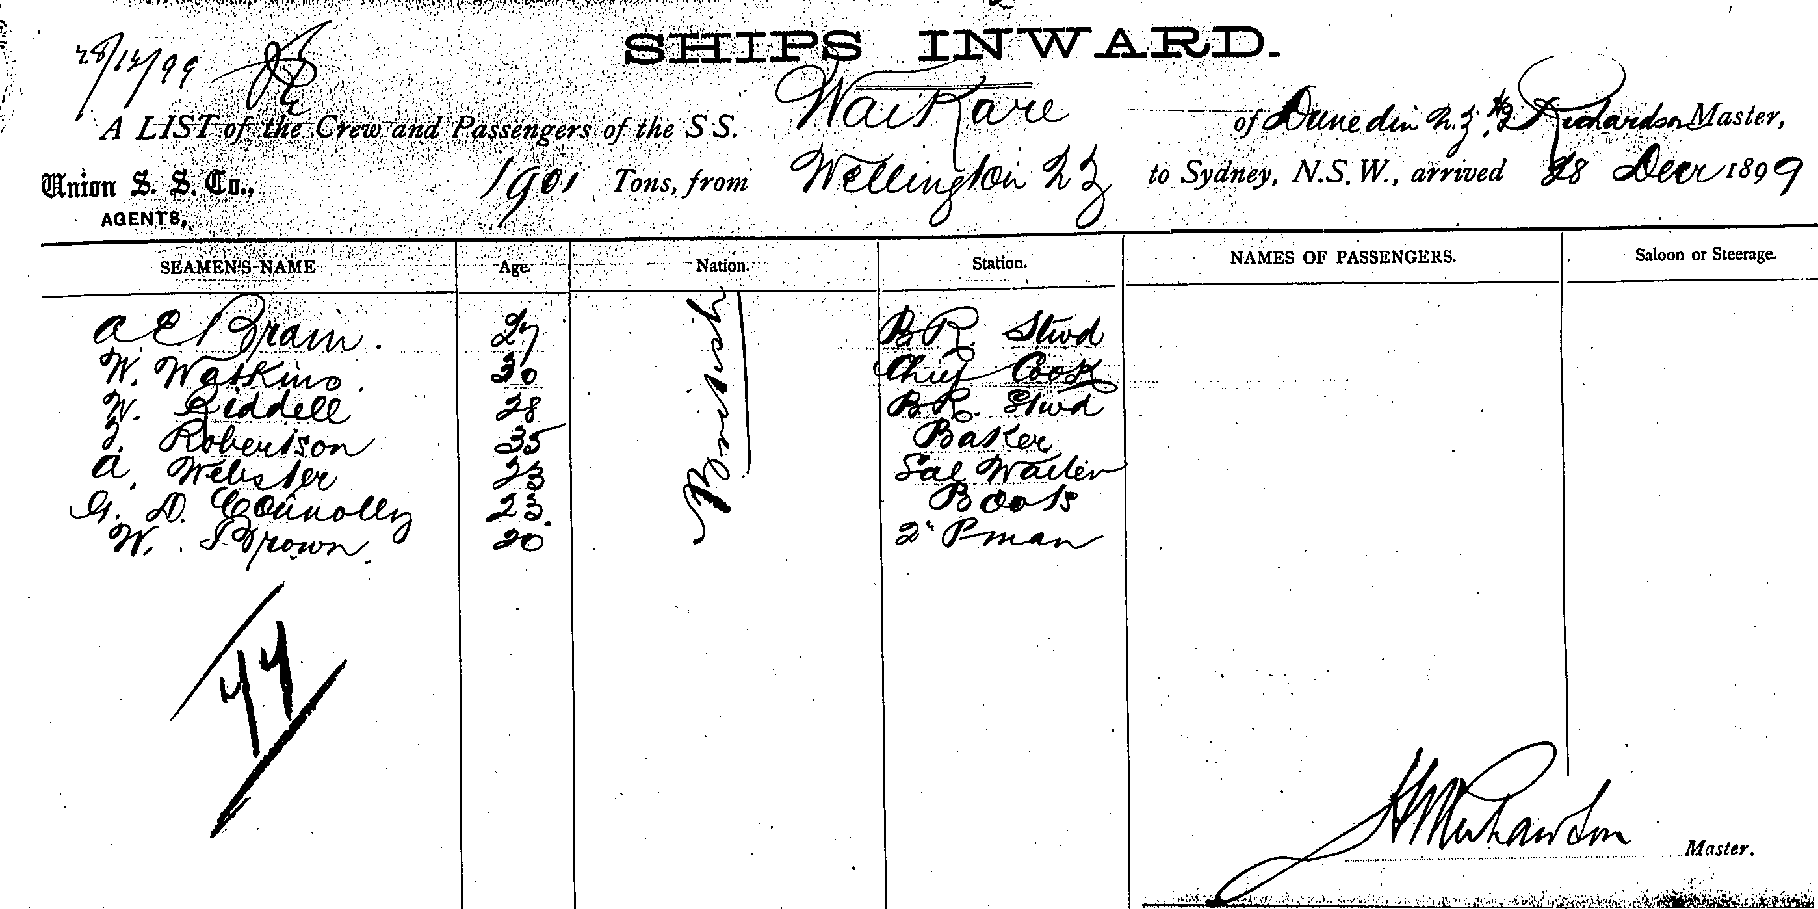 28/12/99
SHIPS INWARD.
A LIST of the Crew and Passengers of the S S. Waikare of Dunedin N.Z. Richardson Master,
Union S. S. Co., AGENTS, 1901 Tons, from Wellington N Z to Sydney, N.S.W., arrived 28 Decr 1899
SEAMEN'S NAME Age Nation. Station. NAMES OF PASSENGERS. Saloon or Steerage.
A E Brain. 27 British B R. Stwd
W. Watkins. 30 Chief Cook
W. Liddell 28 B R. Stwd
Robertson 35 Baker
A. Webster Sal Waiter
G. D. Connolly 23 Boots
W. Brown. 20 2" Pman
44
Master.